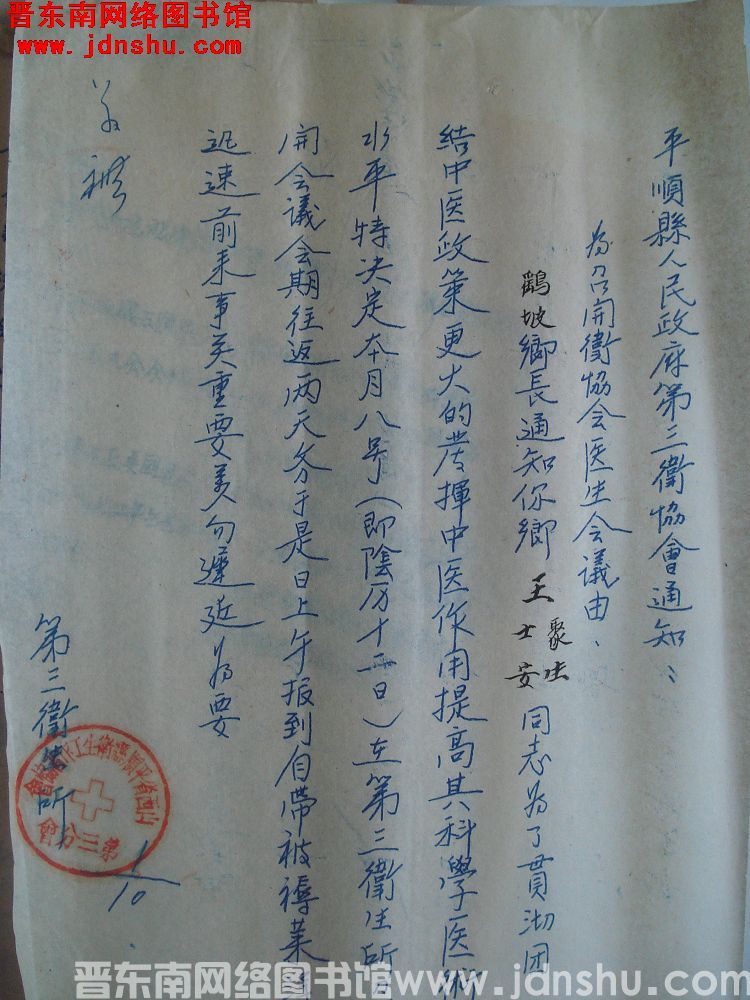 晋东南网络图书馆
www.jdnshu.com
平順縣人民政府第三衛協會通知：
为召開衛協会医生会議由、
鸖坡鄉長通知你鄉 王 聚 士安 同志为了貫沏团
結中医政策更大的发揮中医作用提高其科學医術
水平特决定本月八号（即陰历十二日）在第三衛生所召
開会議会期往返两天务于是日上午报到自帶被褥菜
迟速前来事关重要万勿遲延为要
第三衛生所
1/10
山西省平順縣衛生工作者協會
第三分會
晋东南网络图书馆 www.jdnshu.com